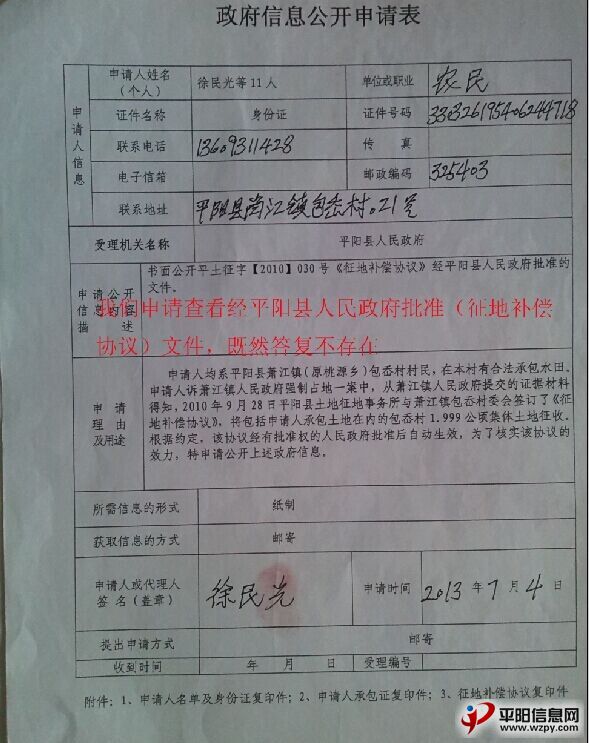 政府信息公开申请表
申请人信息
申请人姓名（个人） 徐民光等11人 单位或职业 农民
证件名称 身份证 证件号码 33326195406244718
联系电话 13609311428 传真
电子信箱 邮政编码 325403
联系地址 平阳县萧江镇包岙村。21号
受理机关名称 平阳县人民政府
申请公开信息内容描述
书面公开平土征字【2010】030号《征地补偿协议》经平阳县人民政府批准的
文件。
我们申请查看经平阳县人民政府批准（征地补偿
协议）文件，既然答复不存在
申请理由及用途
申请人均系平阳县萧江镇（原桃源乡）包岙村村民，在本村有合法承包水田。
申请人诉萧江镇人民政府强制占地一案中，从萧江镇人民政府提交的证据材料
得知，2010年9月28日平阳县土地征地事务所与萧江镇包岙村委会签订了《征
地补偿协议》，将包括申请人承包土地在内的包岙村1.999公顷集体土地征收。
根据约定，该协议经有批准权的人民政府批准后自动生效，为了核实该协议的
效力，特申请公开上述政府信息。
所需信息的形式 纸制
获取信息的方式 邮寄
申请人或代理人签名（盖章） 徐民光 申请时间 2013年7月4日
提出申请方式 邮寄
收到时间 年 月 日 受理编号
附件：1、申请人名单及身份证复印件；2、申请人承包证复印件；3、征地补偿协议复印件
平阳信息网
www.wzpy.com